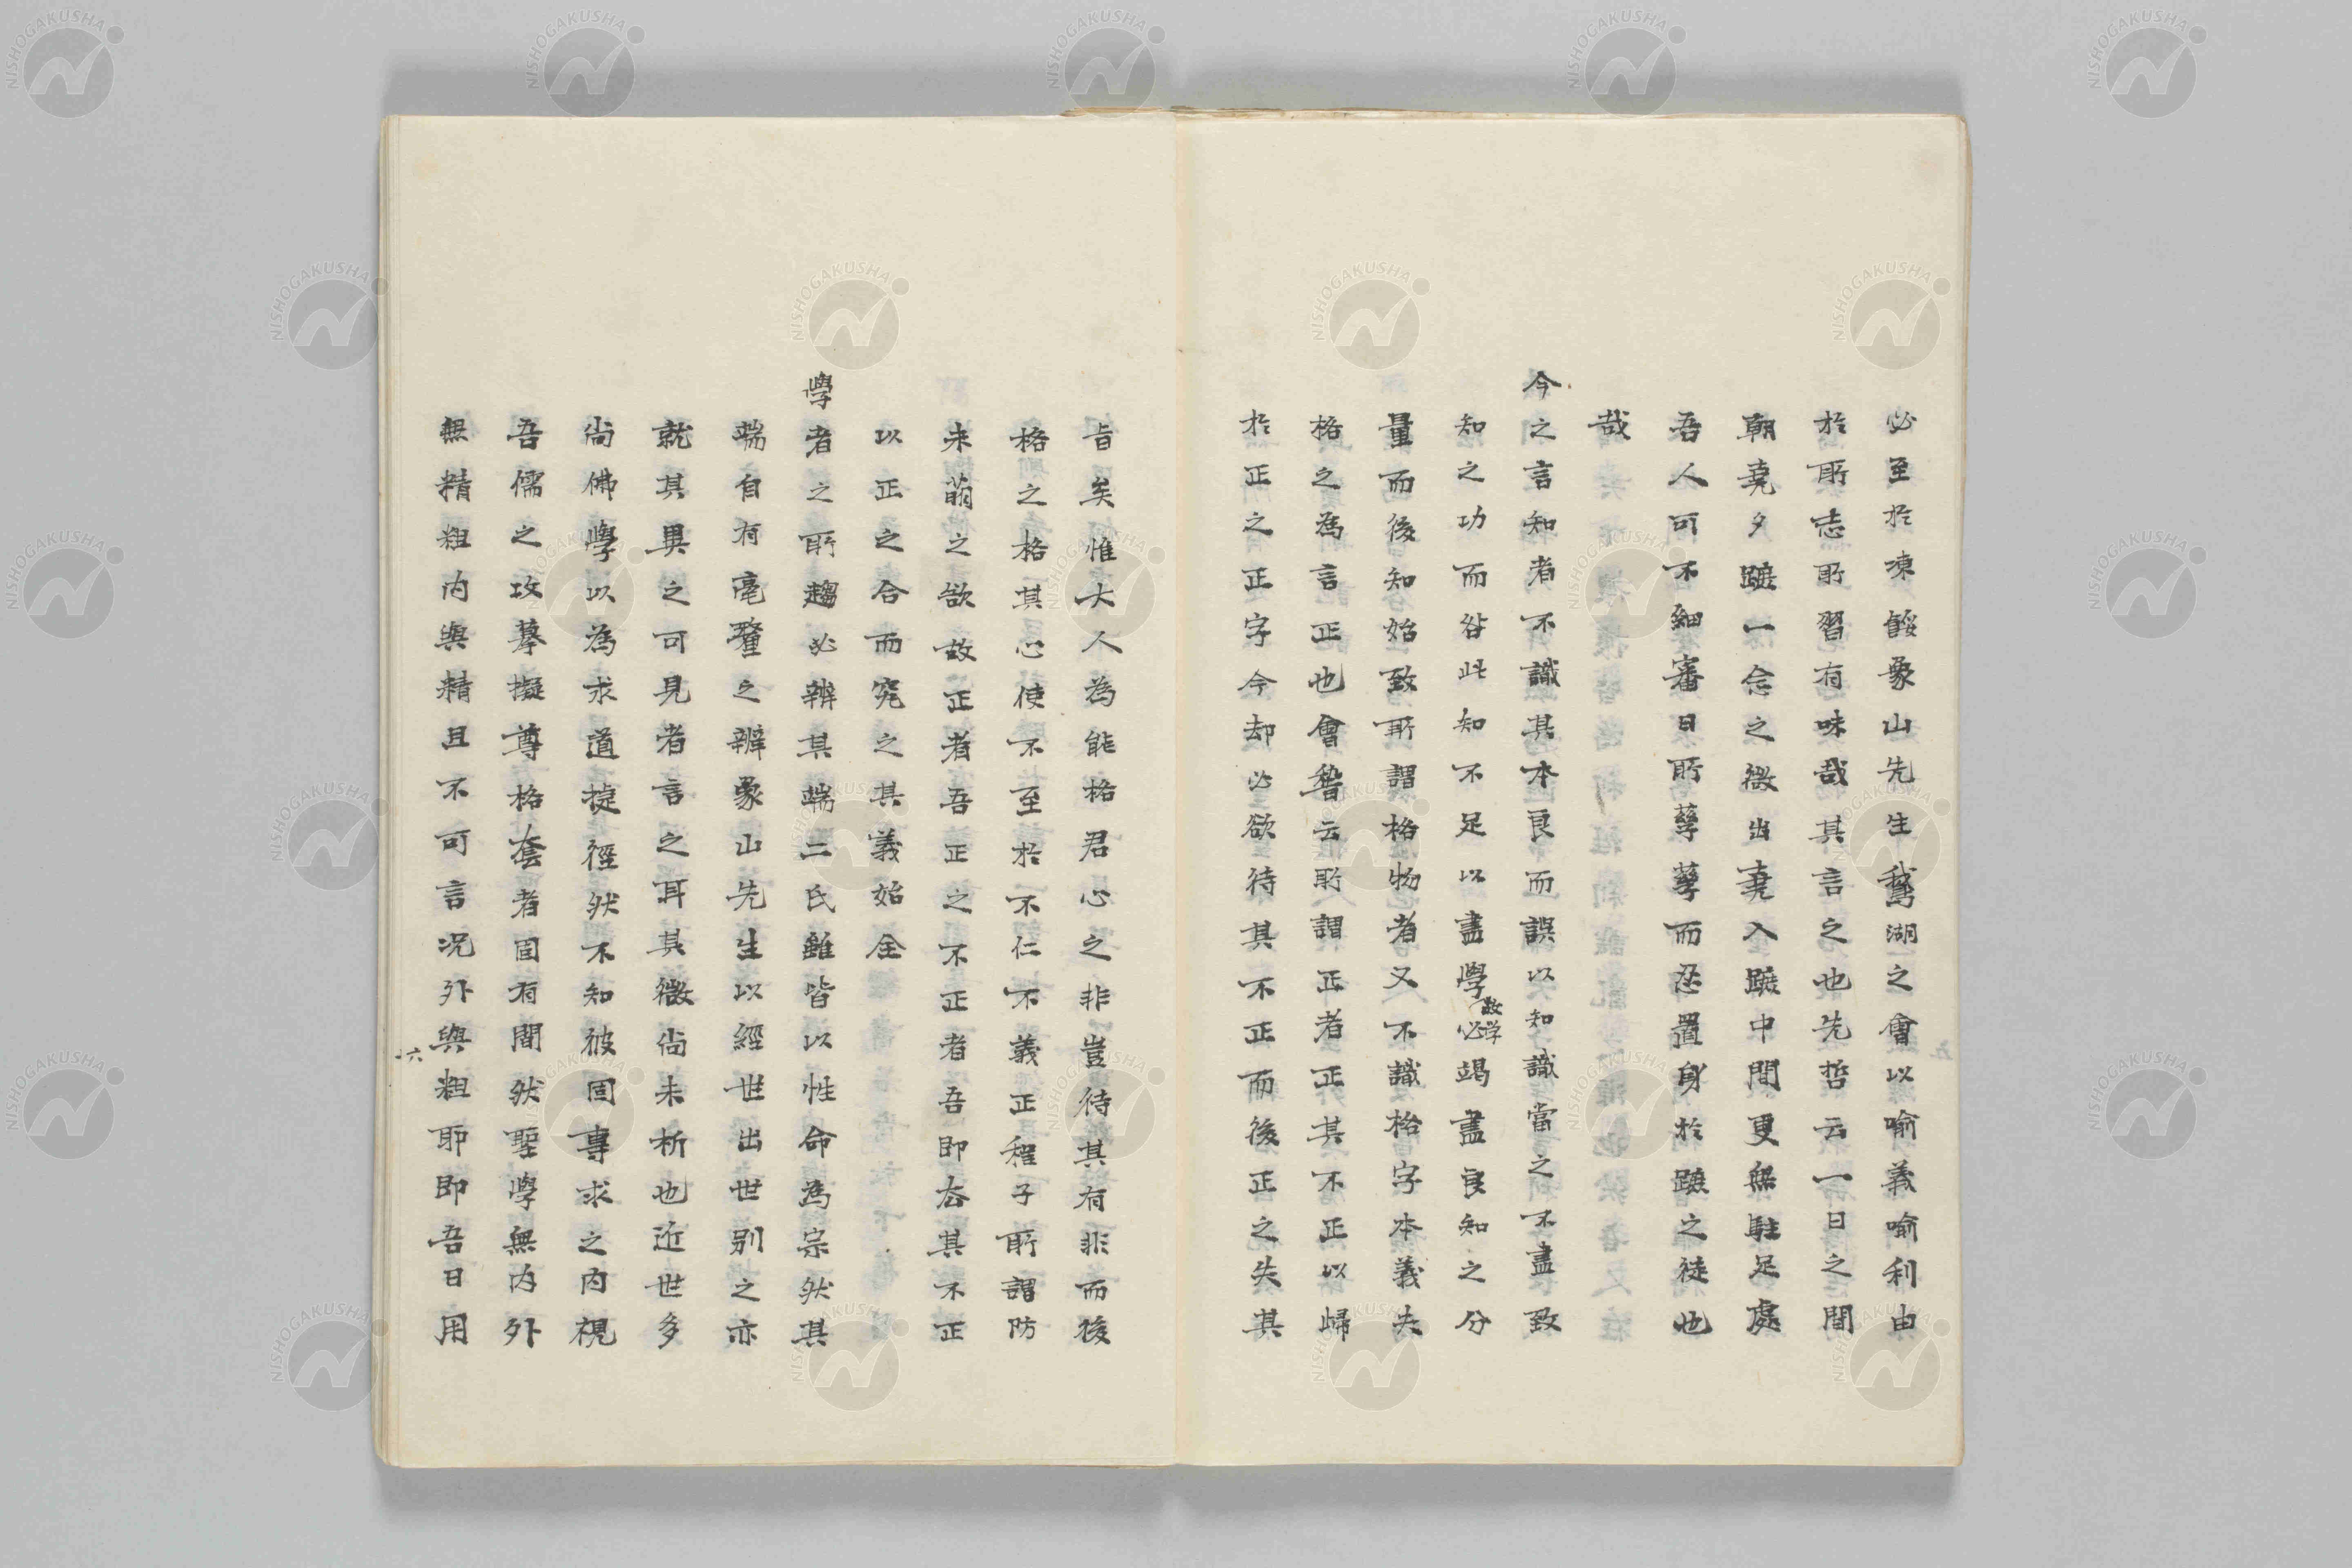 必至於凍餒象山先生鵝湖之會以喻義喻利由
於所志所習有味哉其言之也先哲云一日之間
朝堯夕蹠一念之微出堯入蹠中間更無駐足處
吾人可不細審日所孳孳而忍置身於蹠之徒也
哉
今之言知者不識其本良而誤以知識當之不盡致
知之功而咎此知不足以盡學必竭盡良知之分
数学
量而後知始致所謂格物者又不識格字本義夫
格之為言正也會稽云所謂正者正其不正以歸
於正之正字今却必欲待其不正而後正之失其
旨矣惟大人為能格君心之非豈待其有非而後
格之格其心使不至於不仁不義正程子所謂防
未萌之欲故正者吾正之不正者吾即去其不正
以正之合而究之其義始全
學者之所趨必辨其端二氏雖皆以性命為宗然其
端自有毫釐之辨象山先生以經世出世別之亦
就其異之可見者言之耳其微尚未析也近世多
尚佛學以為求道捷徑然不知彼固專求之內視
吾儒之攻摹擬尊格套者固有間然聖學無內外
無精粗內與精且不可言況外與粗耶即吾日用
六
NISHOGAKUSHA